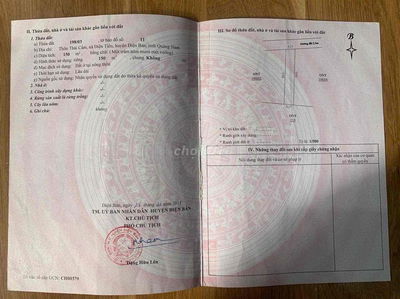 II. Thửa đất, nhà ở và tài sản khác gắn liền với đất
1. Thửa đất:
a) Thửa đất số: 198/03 , tờ bản đồ số: 11
b) Địa chỉ: Thôn Thái Cẩm, xã Điện Tiến, huyện Điện Bàn, tỉnh Quảng Nam
c) Diện tích: 150 m², (bằng chữ: Một trăm năm mươi mét vuông)
d) Hình thức sử dụng: riêng 150 m², chung Không
đ) Mục đích sử dụng: Đất ở tại nông thôn
e) Thời hạn sử dụng: Lâu dài
g) Nguồn gốc sử dụng: Nhận quyền sử dụng đất do thừa kế quyền sử dụng đất
2. Nhà ở:
3. Công trình xây dựng khác:
4. Rừng sản xuất là rừng trồng:
5. Cây lâu năm:
6. Ghi chú:
Điện Bàn, ngày
TM. UỶ BAN NHÂN DÂN HUYỆN ĐIỆN BÀN
KT. CHỦ TỊCH
PHÓ CHỦ TỊCH
Đặng Hữu Lên
Số vào sổ cấp GCN: CH00579
III. Sơ đồ thửa đất, nhà ở và tài sản khác gắn liền với đất
B
Tỷ lệ 1/500
IV. Những thay đổi sau khi cấp giấy chứng nhận
Nội dung thay đổi và cơ sở pháp lý
Xác nhận của cơ quan
có thẩm quyền